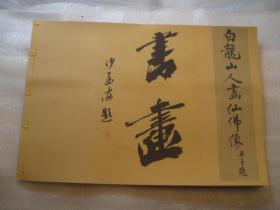 白龍山人畫仙佛像
書畫
沙孟海題